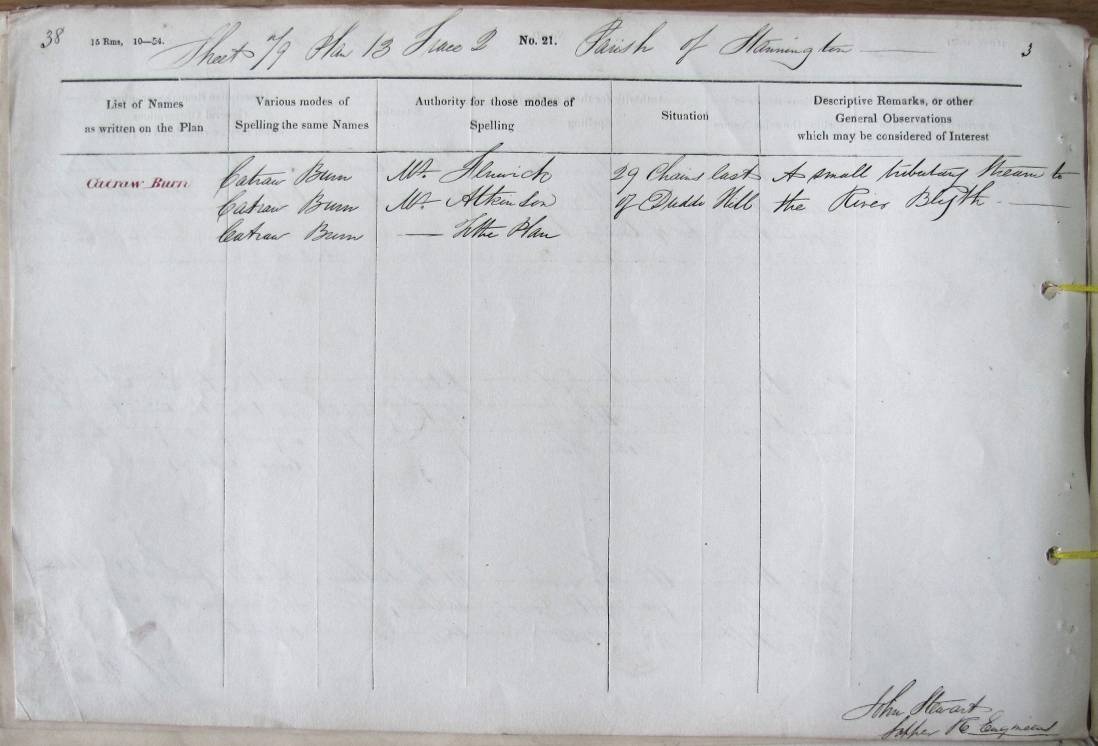 38 15 Rms, 10—54. Sheet 79 Plan 13 Trace 2 No. 21. Parish of Stannington — 3
List of Names
as written on the Plan
Various modes of
Spelling the same Names
Authority for those modes of
Spelling
Situation
Descriptive Remarks, or other
General Observations
which may be considered of Interest
Catraw Burn Catraw Burn Mr. Fenwick 29 Chains East A small tributary Stream to
Catraw Burn Mr. Atkinson of Duddo Hill the River Blyth. —
Catraw Burn — Tithe Plan
John Stewart
Sapper R Engineers